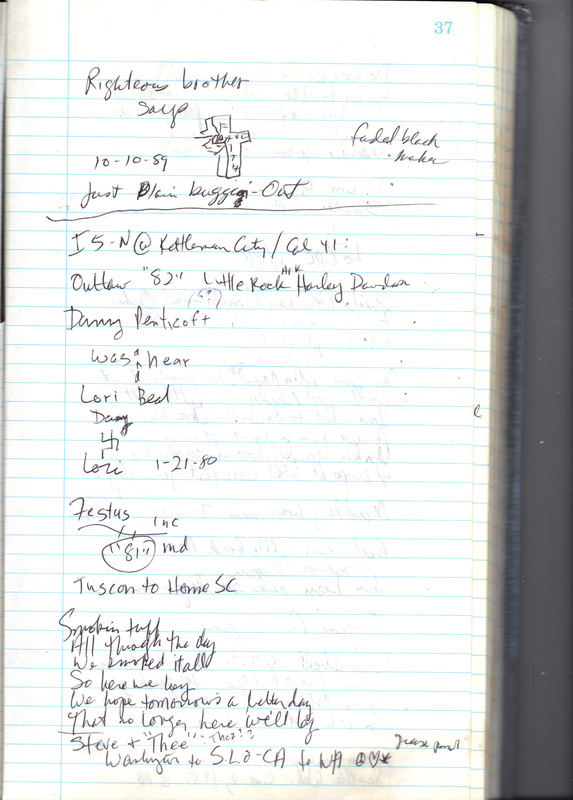 37
Righteous brother
says
faded black
maker
10-10-89
Just Plain buggin-Out
I5-N @ Kettleman City / Cal 41:
Outlaw "82" Little Rock Ark Harley Davidson
(5?)
Danny Penticoft
was and hear
Lori Beal
Danny
Lori 1-21-80
Festus
Inc
"81" md
Tuscon to Home SC
Smokin tuff
All through the day
We smoked it all
So here we lay
We hope tomorrow's a better day
That no longer here we'll lay
Steve + "Thee" - Thea??
Grease pencil
Washington to S.L.O-CA to WA